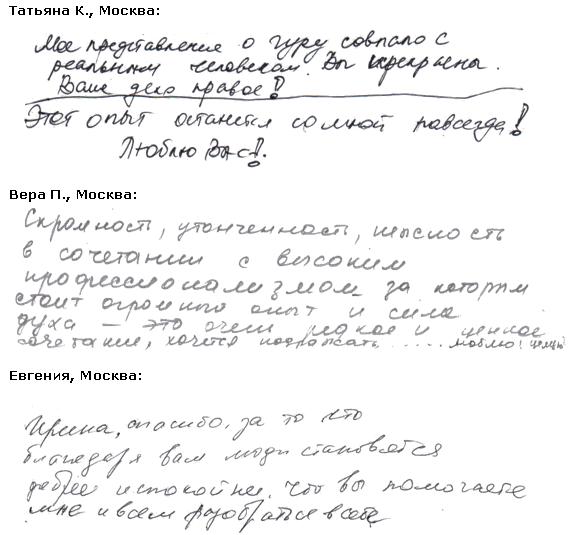 Татьяна К., Москва:
Мое представление о гуру совпало с
реальным человеком. Вы прекрасны.
Ваше дело правое!
Этот опыт останется со мной навсегда!
Люблю Вас!.
Вера П., Москва:
Скромность, утонченность,
в сочетании с высоким
профессионализмом за которым
стоит огромного опыт и сила
духа – это очень редкое и ценное
сочетание, хочется подражать ..... люблю!
Евгения, Москва:
Ирина, спасибо, за то что
благодаря вам люди становятся
добрее и спокойнее, что вы помогаете
мне и всем разобраться в себе